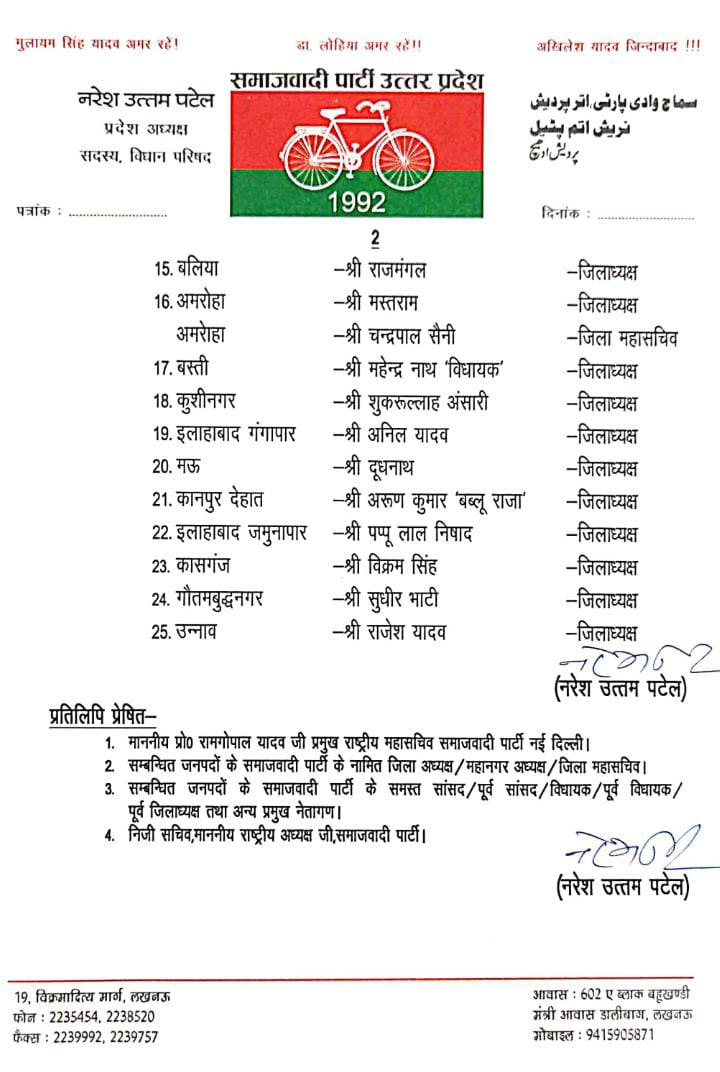 मुलायम सिंह यादव अमर रहें! डा. लोहिया अमर रहें!! अखिलेश यादव जिन्दाबाद !!!
समाजवादी पार्टी उत्तर प्रदेश
नरेश उत्तम पटेल
प्रदेश अध्यक्ष
सदस्य, विधान परिषद
سماج وادی پارٹی، اتر پردیش
نریش اتم پٹیل
پردیش ادھیکچھ
1992
पत्रांक : ........................ दिनांक : ........................
2
15. बलिया –श्री राजमंगल –जिलाध्यक्ष
16. अमरोहा –श्री मस्तराम –जिलाध्यक्ष
अमरोहा –श्री चन्द्रपाल सैनी –जिला महासचिव
17. बस्ती –श्री महेन्द्र नाथ 'विधायक' –जिलाध्यक्ष
18. कुशीनगर –श्री शुकरूल्लाह अंसारी –जिलाध्यक्ष
19. इलाहाबाद गंगापार –श्री अनिल यादव –जिलाध्यक्ष
20. मऊ –श्री दूधनाथ –जिलाध्यक्ष
21. कानपुर देहात –श्री अरूण कुमार 'बब्लू राजा' –जिलाध्यक्ष
22. इलाहाबाद जमुनापार –श्री पप्पू लाल निषाद –जिलाध्यक्ष
23. कासगंज –श्री विक्रम सिंह –जिलाध्यक्ष
24. गौतमबुद्धनगर –श्री सुधीर भाटी –जिलाध्यक्ष
25. उन्नाव –श्री राजेश यादव –जिलाध्यक्ष
(नरेश उत्तम पटेल)
प्रतिलिपि प्रेषित–
1. माननीय प्रो0 रामगोपाल यादव जी प्रमुख राष्ट्रीय महासचिव समाजवादी पार्टी नई दिल्ली।
2. सम्बन्धित जनपदों के समाजवादी पार्टी के नामित जिला अध्यक्ष/महानगर अध्यक्ष/जिला महासचिव।
3. सम्बन्धित जनपदों के समाजवादी पार्टी के समस्त सांसद/पूर्व सांसद/विधायक/पूर्व विधायक/
पूर्व जिलाध्यक्ष तथा अन्य प्रमुख नेतागण।
4. निजी सचिव,माननीय राष्ट्रीय अध्यक्ष जी,समाजवादी पार्टी।
(नरेश उत्तम पटेल)
19, विक्रमादित्य मार्ग, लखनऊ
फोन : 2235454, 2238520
फैक्स : 2239992, 2239757
आवास : 602 ए ब्लाक बहूखण्डी
मंत्री आवास डालीबाग, लखनऊ
मोबाइल : 9415905871